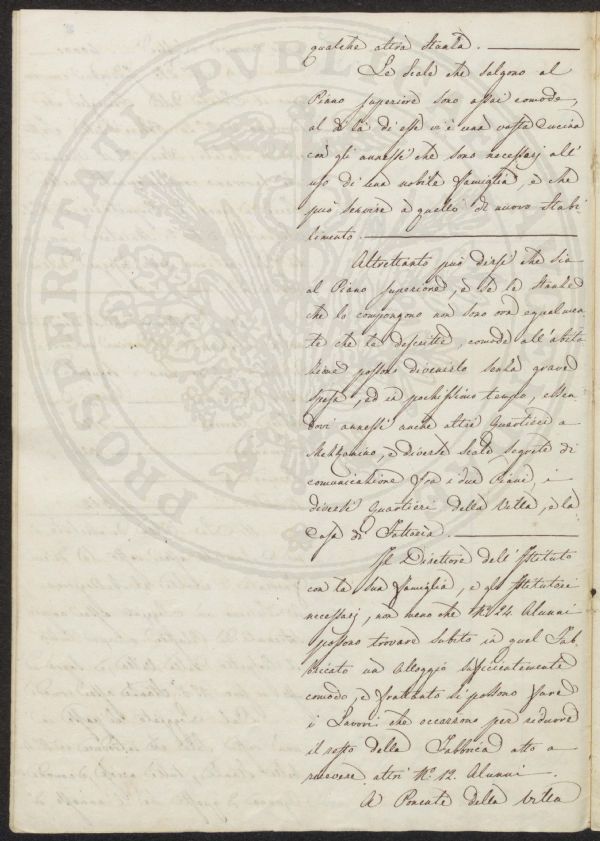 qualche altra stanza.
Le Scale che salgono al
Piano superiore sono assai comode,
al di là di esse vi è una vasta Cucina
con gli annessi che sono necessarj all'
uso di una nobile famiglia, e che
può servire a quello di nuovo stabi
limento.
Altrettanto può dirsi che sia
al Piano superiore, e se le stanze
che lo compongono non sono ora egualmen
te che le descritte, comode all'abita
zione possono divenirlo senza grave
spesa, ed in pochissimo tempo, essen
dovi annessi anche altri Quartieri a
Mezzanino, e diverse Scale segrete di
comunicazione fra i due Piani, i
diversi Quartieri della Villa, e la
Casa di Fattoria.
Il Direttore dell'Istituto
con la sua famiglia, e gl'Istitutori
necessarj, non meno che N.° 24. Alunni
possono trovare subito in quel Fab
bricato un Alloggio sufficientemente
comodo, e frattanto si possono fare
i Lavori che occorrono per ridurre
il resto della Fabbrica atto a
ricevere altri N.° 12. Alunni.
A Ponente della Villa
PROSPERITAT PVBLICAE